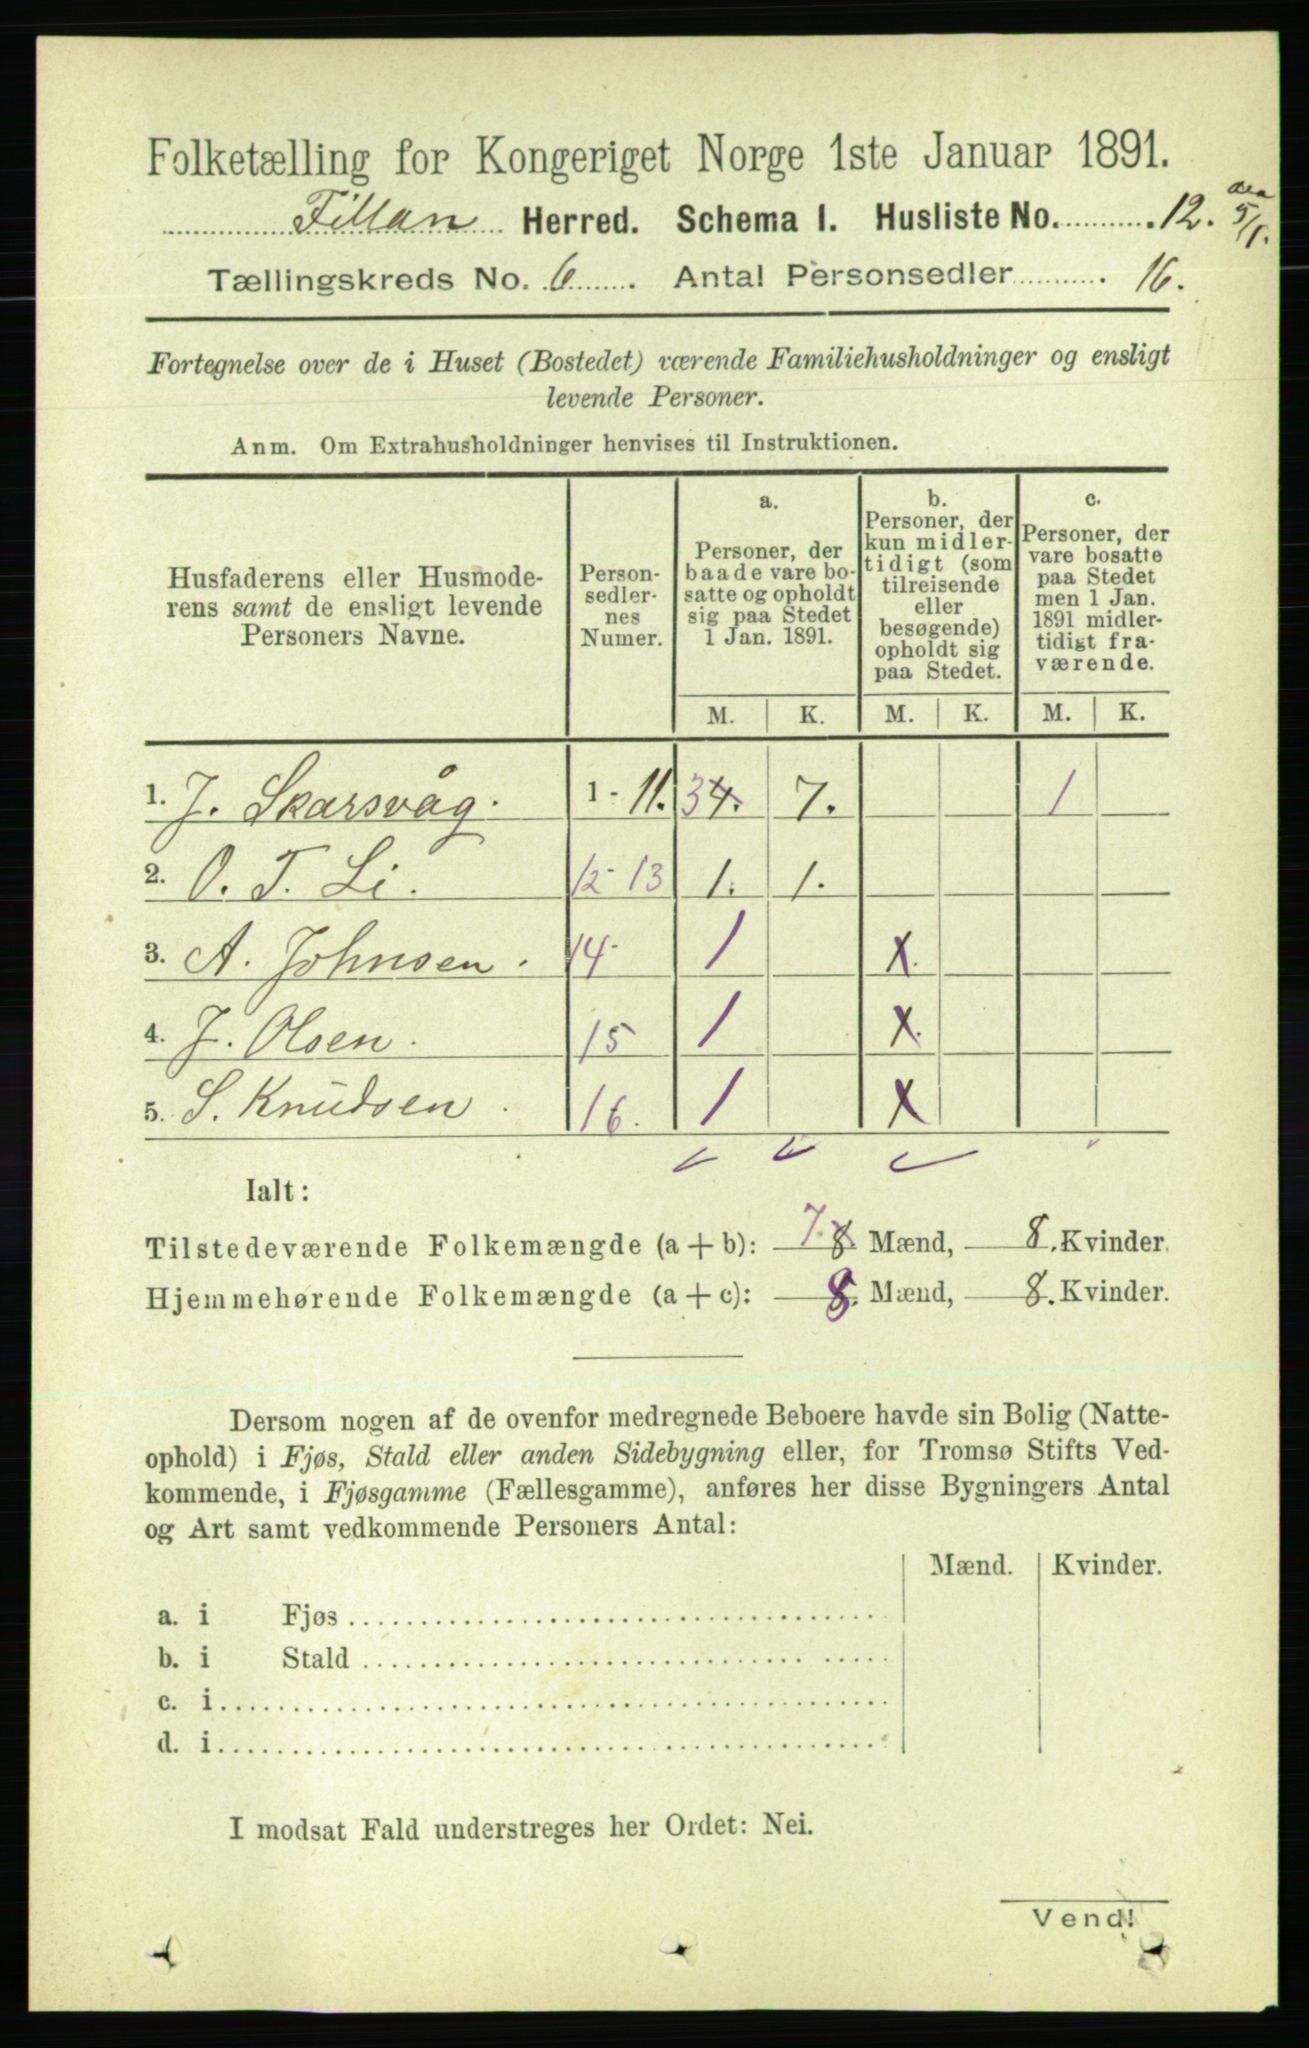 Folketælling for Kongeriget Norge 1ste Januar 1891.
Fillan Herred. Schema I. Husliste No. 12. den 5/1.
Tællingskreds No. 6. Antal Personsedler 16.
Fortegnelse over de i Huset (Bostedet) værende Familiehusholdninger og ensligt
levende Personer.
Anm. Om Extrahusholdninger henvises til Instruktionen.
Husfaderens eller Husmode-
rens samt de ensligt levende
Personers Navne.
Person-
sedler-
nes
Numer.
a.
Personer, der
baade vare bo-
satte og opholdt
sig paa Stedet
1 Jan. 1891.
b.
Personer, der
kun midler-
tidigt (som
tilreisende
eller
besøgende)
opholdt sig
paa Stedet.
c.
Personer, der
vare bosatte
paa Stedet
men 1 Jan.
1891 midler-
tidigt fra-
værende.
M. K. M. K. M. K.
1. J. Skarsvåg. 1 - 11. 3 4. 7. 1
2. O. T. Li. 12 - 13 1. 1.
3. A. Johnsen. 14 1 X.
4. J. Olsen. 15 1 X.
5. S. Knudsen. 16. 1 X
Ialt:
Tilstedeværende Folkemængde (a + b): 7. 8. Mænd, 8. Kvinder.
Hjemmehørende Folkemængde (a + c): 8. Mænd, 8. Kvinder.
Dersom nogen af de ovenfor medregnede Beboere havde sin Bolig (Natte-
ophold) i Fjøs, Stald eller anden Sidebygning eller, for Tromsø Stifts Ved-
kommende, i Fjøsgamme (Fællesgamme), anføres her disse Bygningers Antal
og Art samt vedkommende Personers Antal:
Mænd. Kvinder.
a. i Fjøs
b. i Stald
c. i
d. i
I modsat Fald understreges her Ordet: Nei.
Vend!